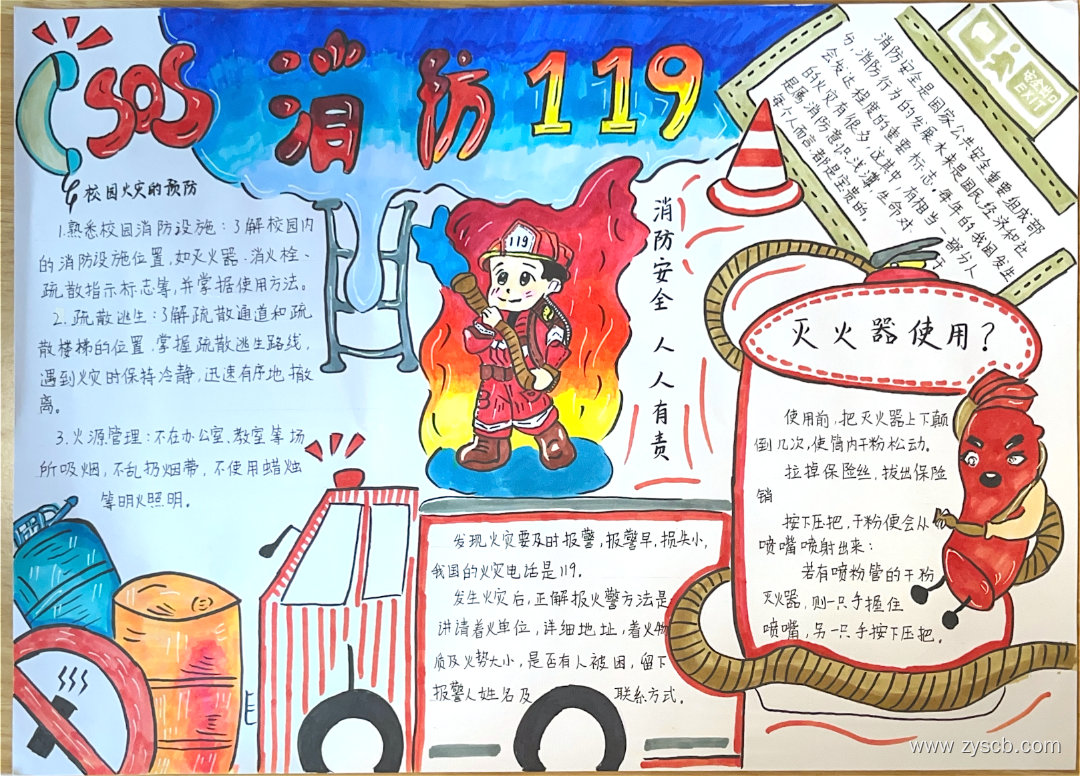 SOS
消防119
校园火灾的预防
1.熟悉校园消防设施：了解校园内
的消防设施位置，如灭火器、消火栓、
疏散指示标志等，并掌握使用方法。
2.疏散逃生：了解疏散通道和疏
散楼梯的位置，掌握疏散逃生路线，
遇到火灾时保持冷静，迅速有序地撤
离。
3.火源管理：不在办公室、教室等场
所吸烟，不乱扔烟蒂，不使用蜡烛
等明火照明。
119
消防安全 人人有责
安全出口
EXIT
消防安全是国家公共安全重要组成部
份，消防行为的发展水来是国民经济和社
会发达程度的重要标志，每年的我国发生
的火灾有很多，这其中，有相当一部分人
是属消防意识浅薄，生命对于
每个人而言都是宝贵的，
灭火器使用？
使用前，把灭火器上下颠
倒几次，使筒内干粉松动。
拉掉保险丝，拔出保险
销
按下压把，干粉便会从
喷嘴喷射出来：
若有喷粉管的干粉
灭火器，则一只手握住
喷嘴，另一只手按下压把。
发现火灾要及时报警，报警早，损失小，
我国的火灾电话是119。
发生火灾后，正解报火警方法是
讲请着火单位，详细地址，着火物
质及火势大小，是否有人被困，留下
报警人姓名及 联系方式。
www.zyscb.com